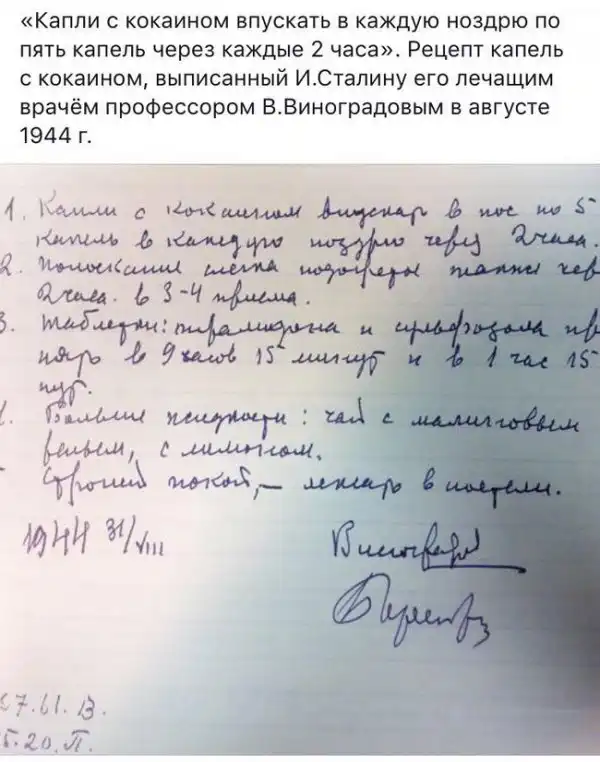 «Капли с кокаином впускать в каждую ноздрю по
пять капель через каждые 2 часа». Рецепт капель
с кокаином, выписанный И.Сталину его лечащим
врачём профессором В.Виноградовым в августе
1944 г.
1. Капли с кокаином впускар в нос по 5
капель в каждую ноздрю через 2 часа.
2. Полоскание слегка подогретое также чер
2 часа. в 3-4 приема.
3. Таблетки: пирамидона и сульфазола пр
няр в 9 часов 15 минут и в 1 час 15
нут.
Больше жидкости: чай с малиновым
реньем, с лимоном.
Строгий покой, — лежать в постели.
1944 31/VIII
Виноградов
7.61. В.
20. П.